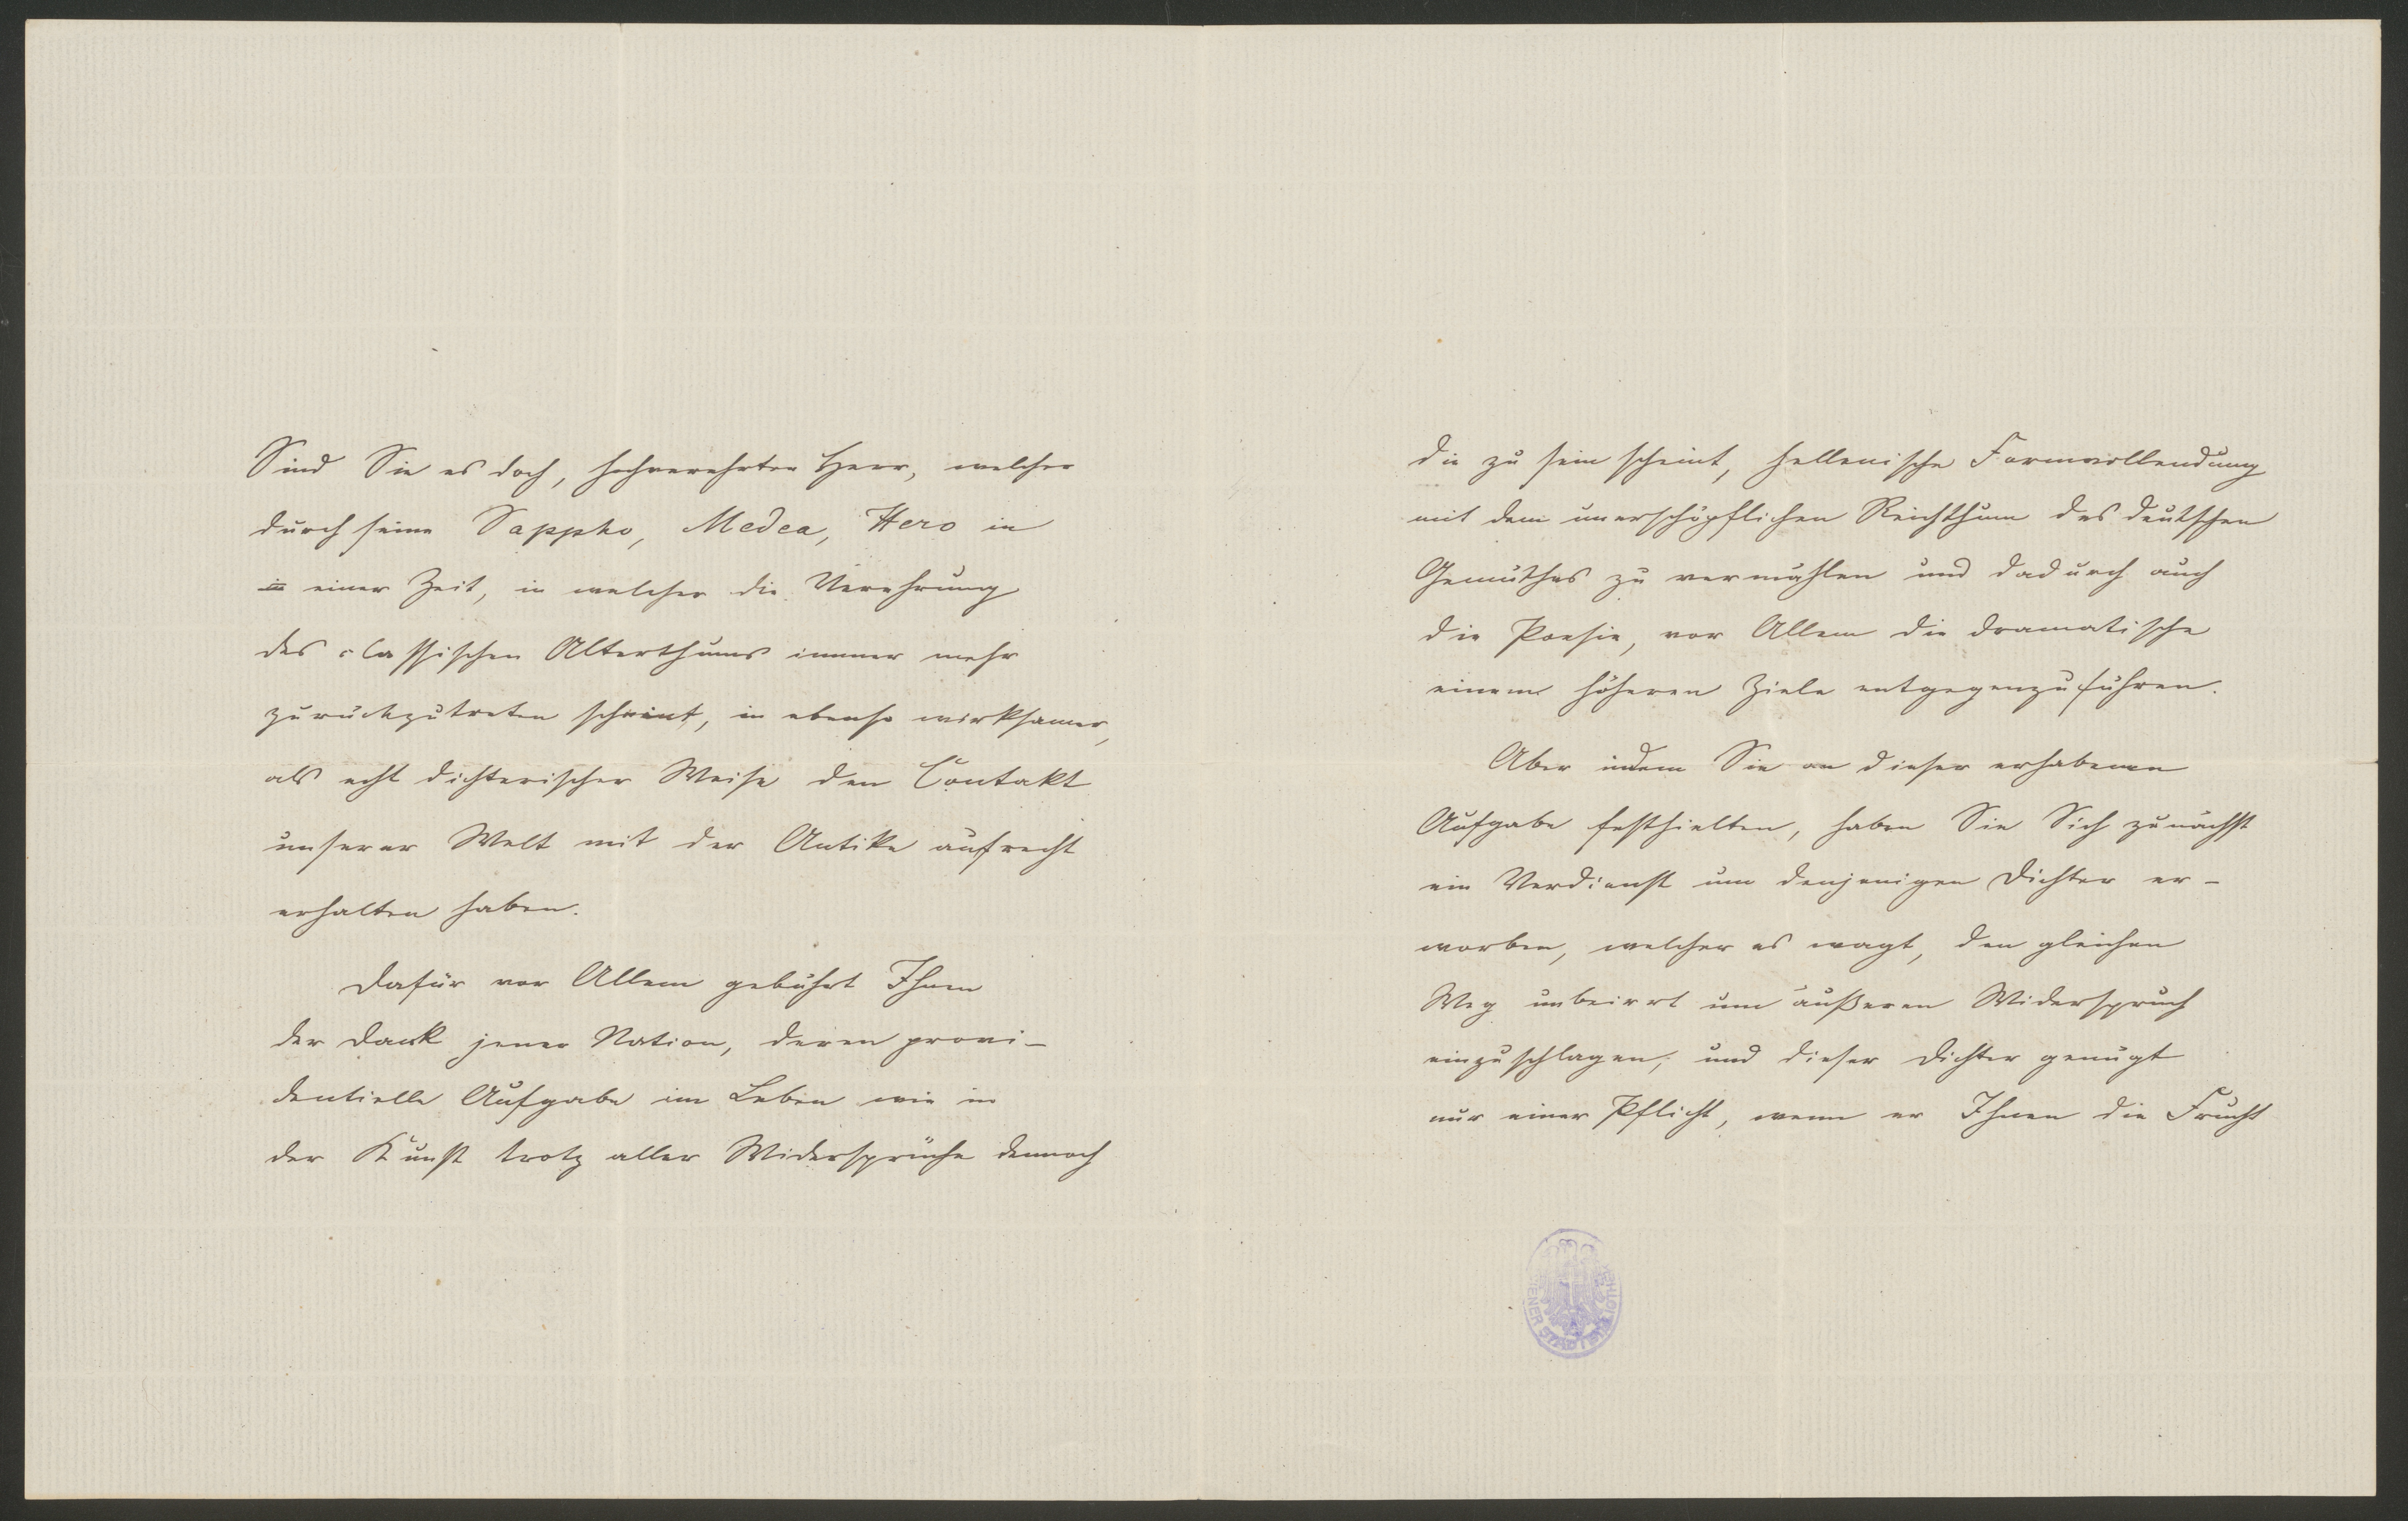 Sind Sie es doch, hochverehrter Herr, welcher
durch seine Sappho, Medea, Hero in
in einer Zeit, in welcher die Verehrung
des classischen Alterthums immer mehr
zurückzutreten scheint, in ebenso wirksamer,
als echt dichterischer Weise den Contakt
unserer Welt mit der Antike aufrecht
erhalten haben.
Dafür vor Allem gebührt Ihnen
der Dank jener Nation, deren provi-
dentielle Aufgabe im Leben wie in
der Kunst trotz aller Widersprüche dennoch
die zu sein scheint, hellenische Formvollendung
mit dem unerschöpflichen Reichthum des deutschen
Gemüthes zu vermählen und dadurch auch
die Poesie, vor Allem die dramatische
einem höheren Ziele entgegenzuführen.
Aber indem Sie an dieser erhabenen
Aufgabe festhielten, haben Sie Sich zunächst
ein Verdienst um denjenigen Dichter er-
worben, welcher es wagt, den gleichen
Weg unbeirrt um äußeren Widerspruch
einzuschlagen; und dieser Dichter genügt
nur einer Pflicht, wenn er Ihnen die Frucht